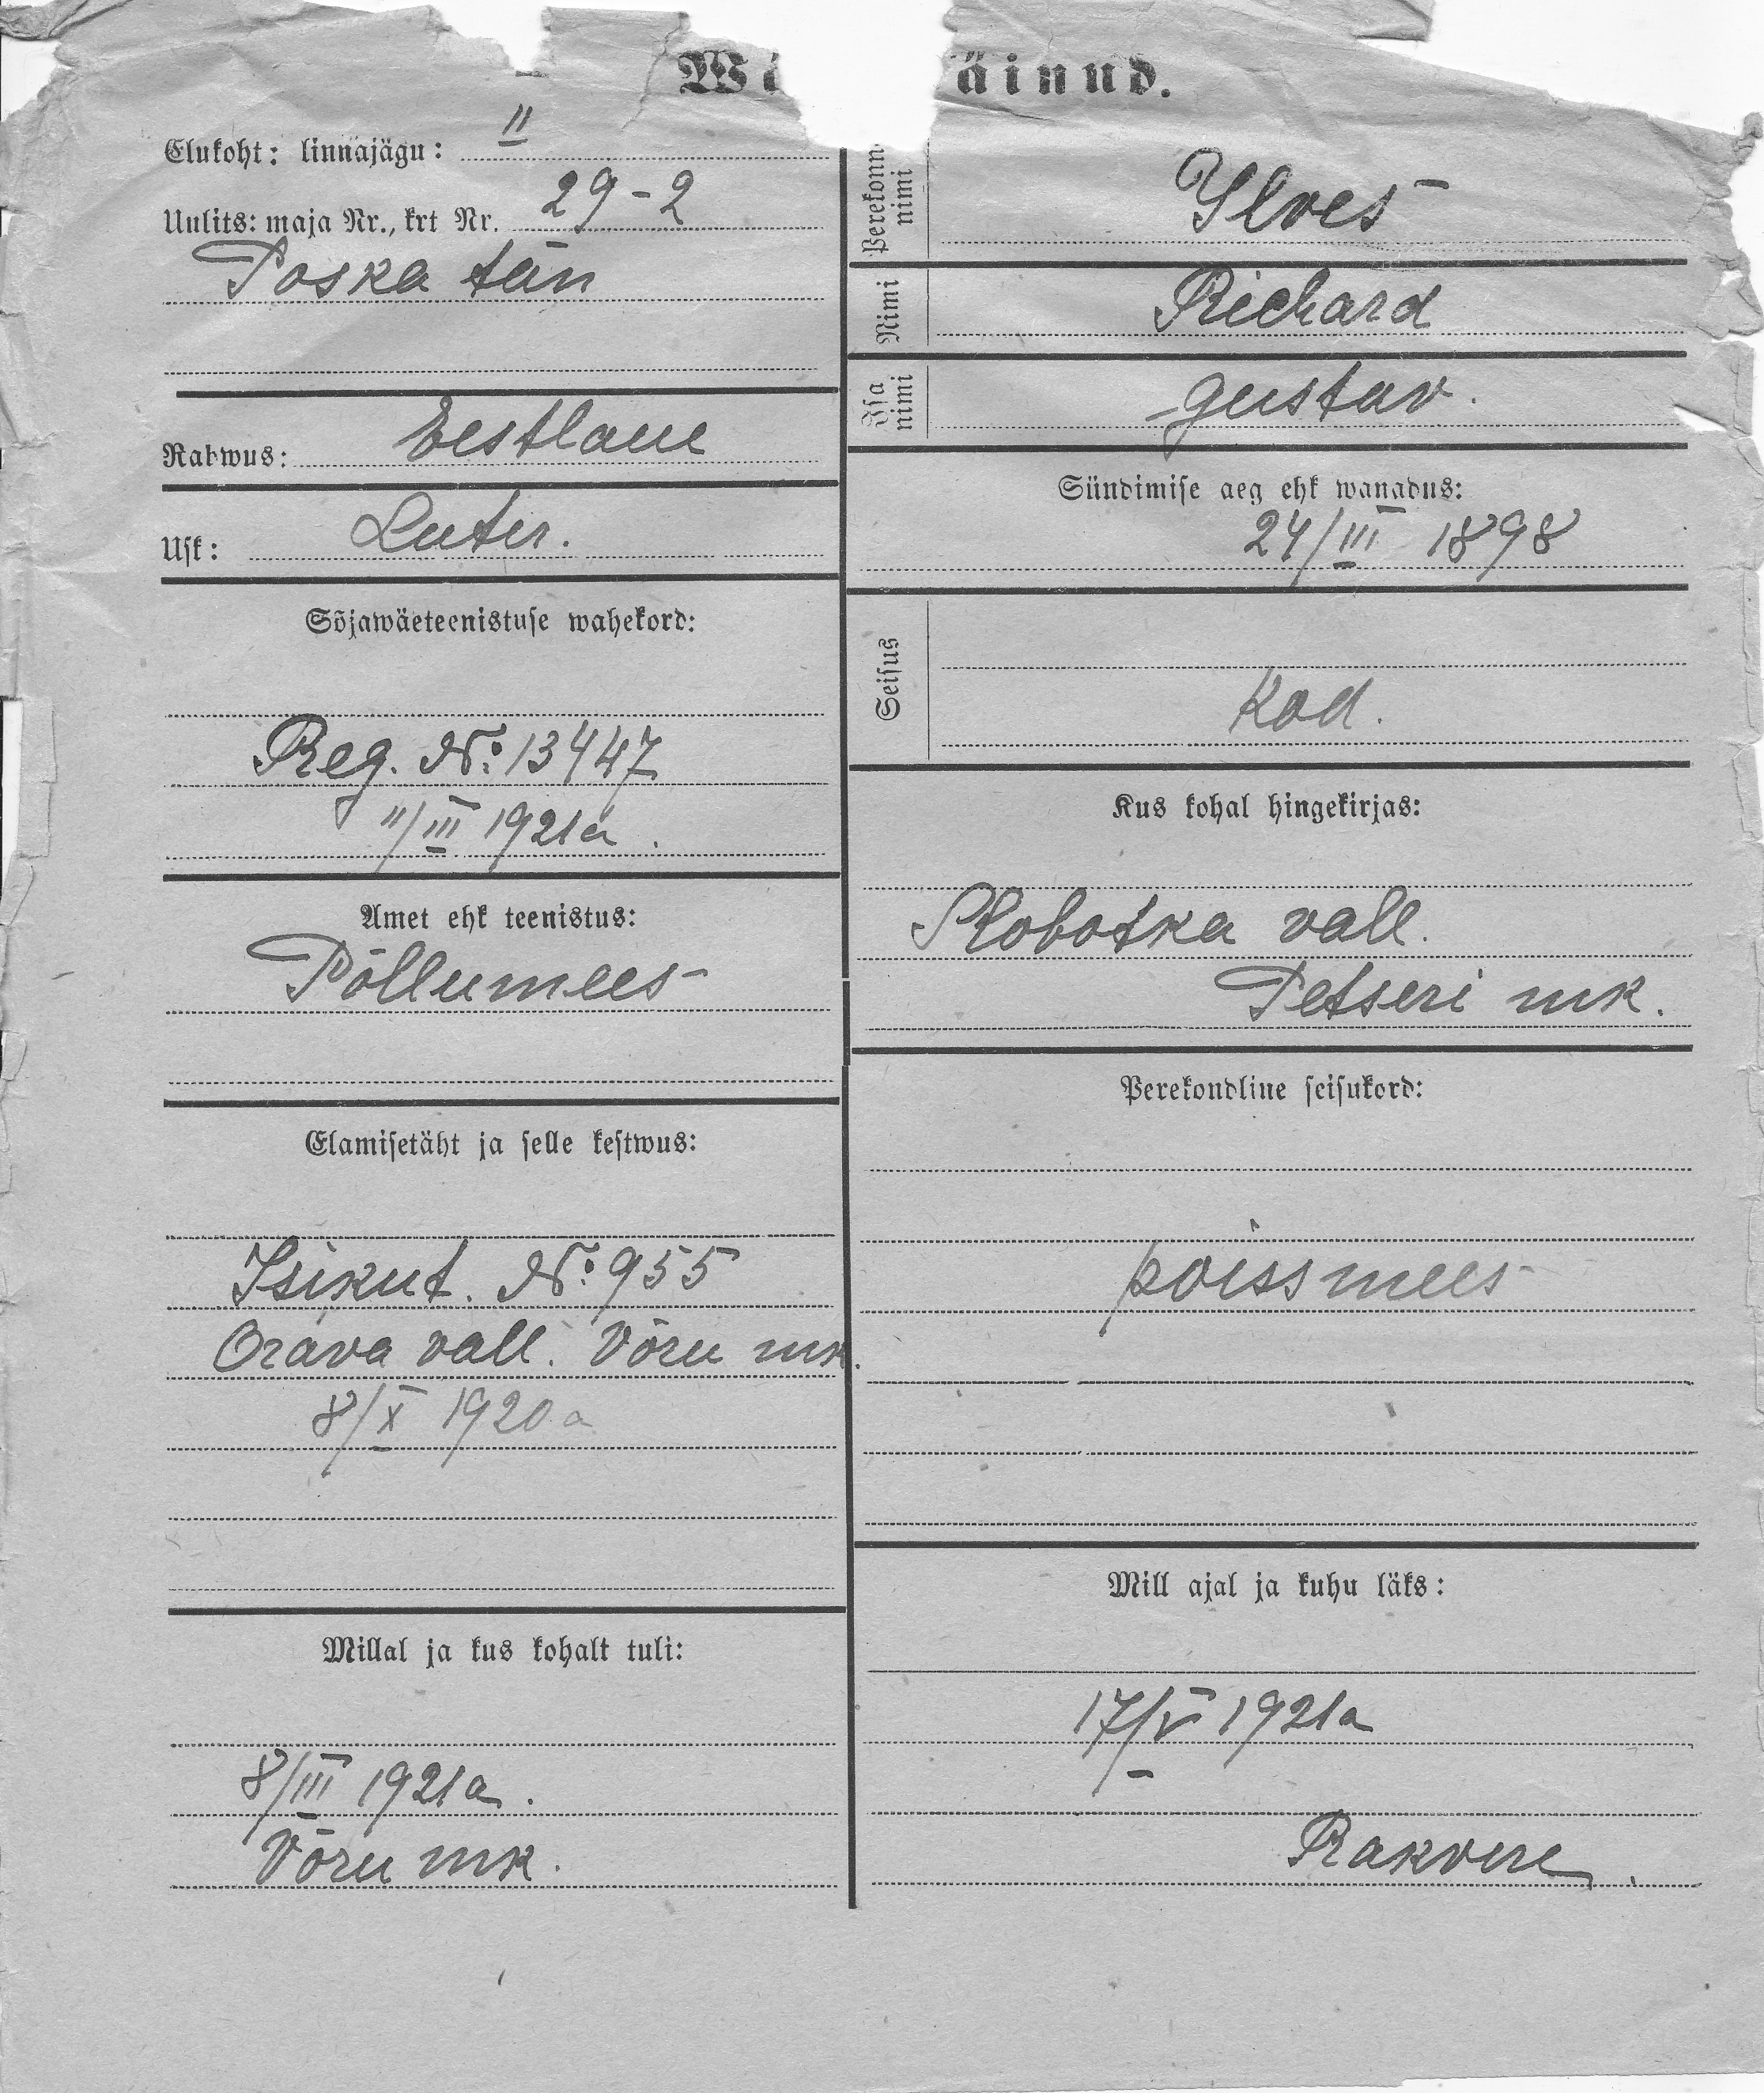 äinud.
Elukoht: linnajägu: II
Uulits: maja Nr., krt Nr. 29-2
Poska tän
Rahwus: Eestlane
Usk: Luter.
Sõjawäeteenistuse wahekord:
Reg. №: 13447
11/III 1921a.
Amet ehk teenistus:
Põllumees
Elamisetäht ja selle kestwus:
Isikut. №: 955
Orava vall. Võru mk.
8/X 1920a
Millal ja kus kohalt tuli:
8/III 1921a.
Võru mk.
Perekonn
nimi
Ilves
Nimi
Richard
Isa
nimi
Gustav.
Sündimise aeg ehk wanadus:
24/III 1898
Seisus
Kod.
Kus kohal hingekirjas:
Slobotka vall.
Petseri mk.
Perekondline seisukord:
poissmees
Mill ajal ja kuhu läks:
17/V 1921a
Rakvere.